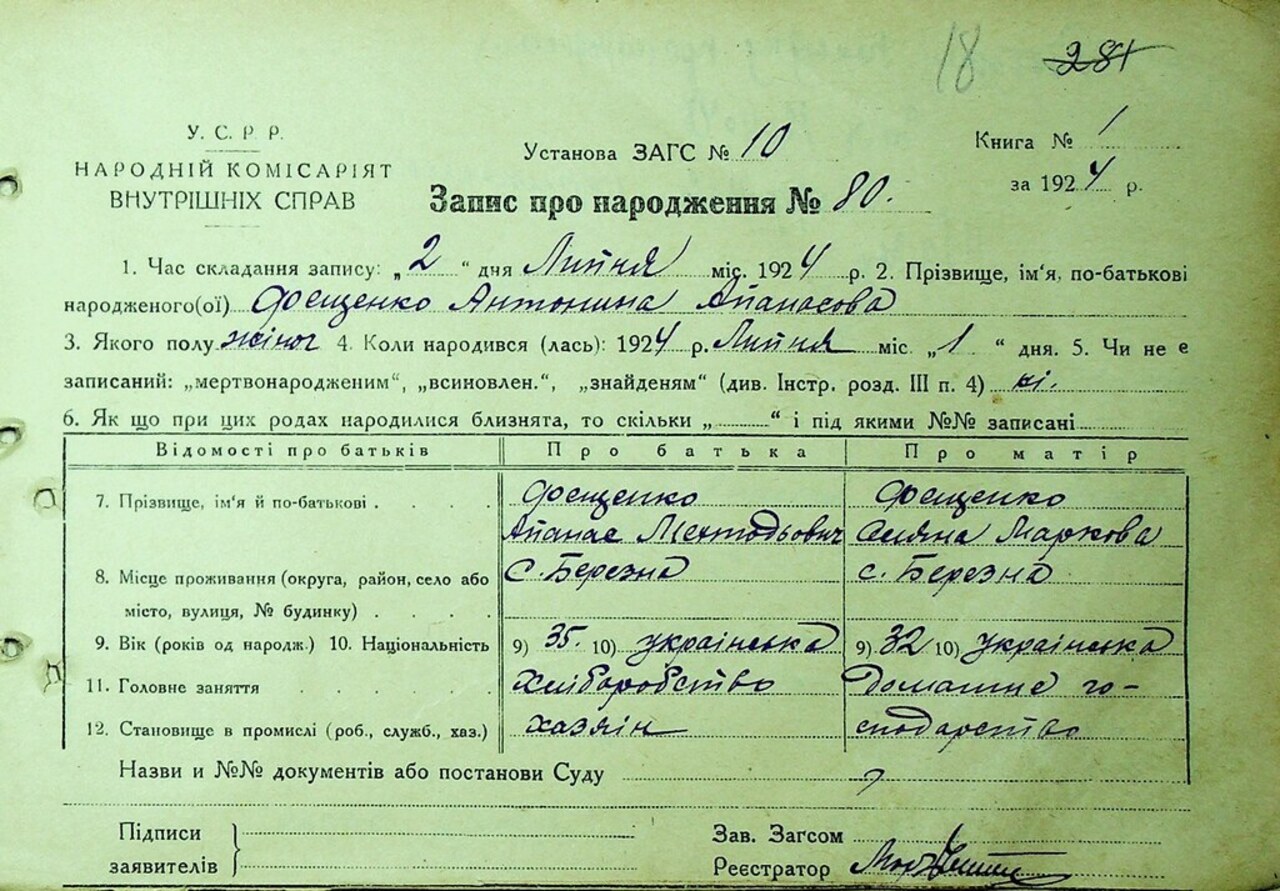 18 281
У. С. Р. Р.
НАРОДНІЙ КОМІСАРІЯТ
ВНУТРІШНІХ СПРАВ
Установа ЗАГС № 10
Книга № 1
за 1924 р.
Запис про народження № 80.
1. Час складання запису: „ 2 “ дня Липня міс. 1924 р. 2. Прізвище, ім'я, по-батькові
народженого(ої) Фещенко Антонина Апанасова
3. Якого полу жіноч 4. Коли народився (лась): 1924 р. Липня міс. „ 1 “ дня. 5. Чи не є
записаний: „мертвонародженим“, „всиновлен.“, „знайденям“ (див. Інстр. розд. III п. 4) ні.
6. Як що при цих родах народилися близнята, то скільки „ “ і під якими №№ записані
Відомості про батьків Про батька Про матір
7. Прізвище, ім'я й по-батькові Фещенко Фещенко
Апанас Методьович Маркова
8. Місце проживання (округа, район, село або с. Березна с. Березна
місто, вулиця, № будинку)
9. Вік (років од народж.) 10. Національність 9) 35. 10) українська 9) 32 10) українська
11. Головне заняття Хліборобство Домашнє го-
12. Становище в промислі (роб., служб., хаз.) хазяін сподарство
Назви и №№ документів або постанови Суду
Підписи
заявителів
Зав. Загсом
Реєстратор